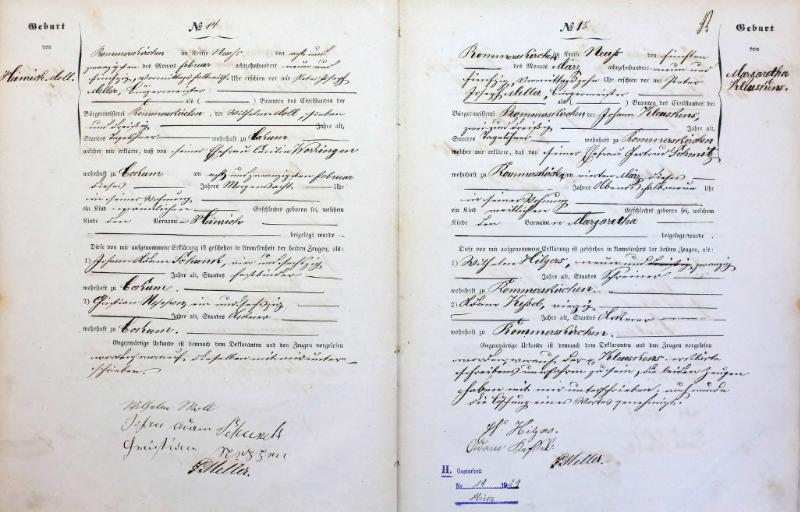 Geburt
von
Heinrich Moll.
№ 14
Rommerskirchen im Kreise Neuß den acht und
zwanzigsten des Monats Februar achtzehnhundert neun und
fünfzig, Vormittags halb Uhr erschien vor mir Peter Joseph
Meller, Bürgermeister
als ( ) Beamten des Civilstandes der
Bürgermeisterei Rommerskirchen, der Wilhelm Moll, sieben
und dreißig Jahre alt,
Standes Tagelöhner wohnhaft zu
welcher mir erklärte, daß von seiner Ehefrau Cäcilia Worringen
wohnhaft zu am acht und zwanzigsten Februar
dieses Jahres Morgens acht Uhr
in seiner Wohnung
ein Kind männlichen Geschlechts geboren sei, welchem
Kinde den Vornamen Heinrich
beigelegt wurde
Diese von mir aufgenommene Erklärung ist geschehen in Anwesenheit der beiden Zeugen, als:
1) Johann Adam Schunk, ein und sechszig
Jahre alt, Standes Faßbinder
wohnhaft zu
2) Christian ein und sechszig
Jahre alt, Standes Ackerer
wohnhaft zu
Gegenwärtige Urkunde ist demnach dem Deklaranten und den Zeugen vorgelesen
worden, worauf dieselben mit mir unter-
schrieben.
Wilhelm Moll
Johan Adam Schunk
Christian
P. Meller.
№ 15.
Geburt
von
Margaretha
Kleuskens.
Rommerskirchen im Kreise Neuß den fünften
des Monats März achtzehnhundert neun und
fünfzig, Vormittags zehn Uhr erschien vor mir Peter
Joseph Meller, Bürgermeister
als ( ) Beamten des Civilstandes der
Bürgermeisterei Rommerskirchen, Johann Kleuskens,
zwei und dreißig Jahre alt,
Standes Tagelöhner wohnhaft zu Rommerskirchen
welcher mir erklärte, daß von seiner Ehefrau Gertrud Schmitz
wohnhaft zu Rommerskirchen am vierten März dieses
Jahres Abends halb neun Uhr
in seiner Wohnung
ein Kind weiblichen Geschlechts geboren sei, welchem
Kinde den Vornamen Margaretha
beigelegt wurde
Diese von mir aufgenommene Erklärung ist geschehen in Anwesenheit der beiden Zeugen, als:
1) Wilhelm Hilgers, neun und zwanzig
Jahre alt, Standes Schreiner
wohnhaft zu Rommerskirchen
2) Adam Keßel, vierzig
Jahre alt, Standes Ackerer
wohnhaft zu Rommerskirchen.
Gegenwärtige Urkunde ist demnach dem Deklaranten und den Zeugen vorgelesen
worden, worauf der Kleuskens erklärte
schreibens unerfahren zu sein, die beiden Zeugen
haben mit mir unterschrieben, auch wurde
die Löschung eines Wortes genehmigt.
Adam Kessel
P. Meller.
H. Gestorben
Nr. 19